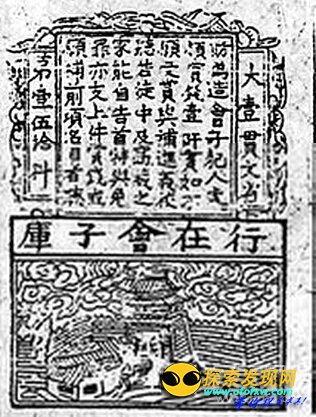 大壹貫文省
偽造會子犯人
賞錢壹阡貫如不
願支賞與補進義校
若徒中及窩藏之
家能自告首特與免
罪亦支上件賞錢或
願補前項名目者
第壹伍拾料
行在會子庫
探索发现网